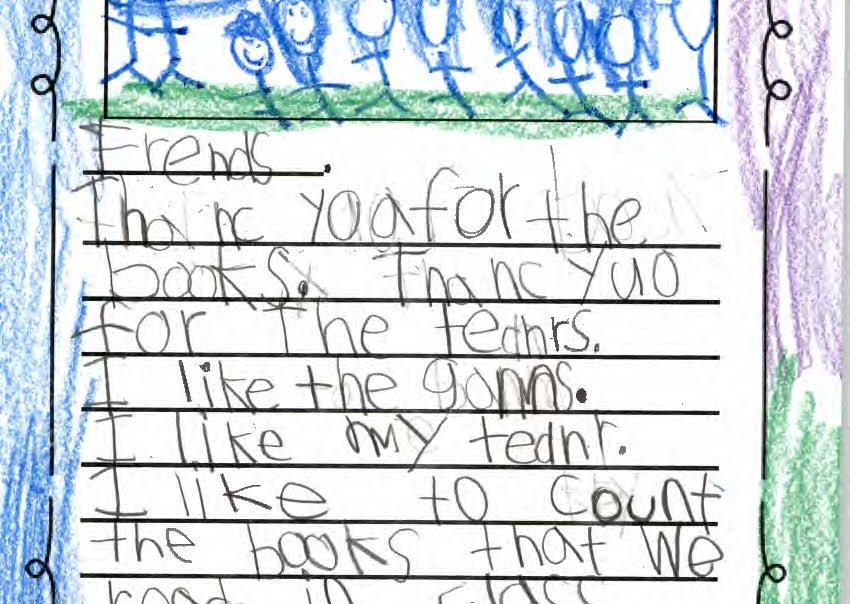 Frends.
Thanc yaa for the
books. Thanc yuo
for The teahrs.
I like the gamns.
I like my teahr.
I like to count
the books that we
read in class